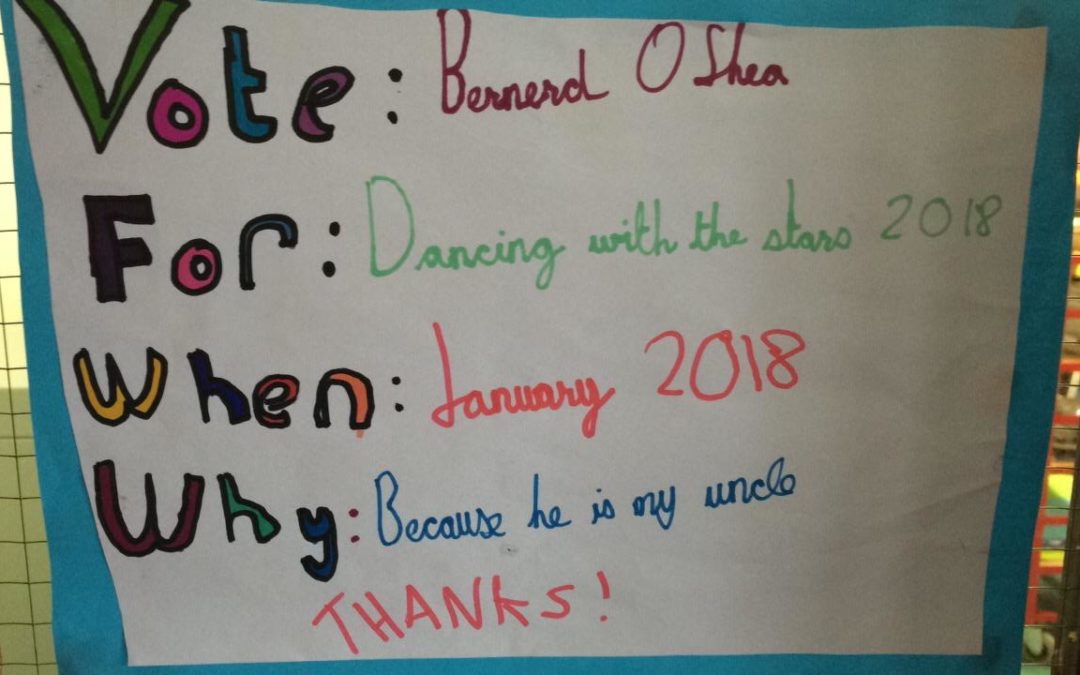 Vote: Bernerd O Shea
For: Dancing with the stars 2018
When: January 2018
Why: Because he is my uncle
THANKS!